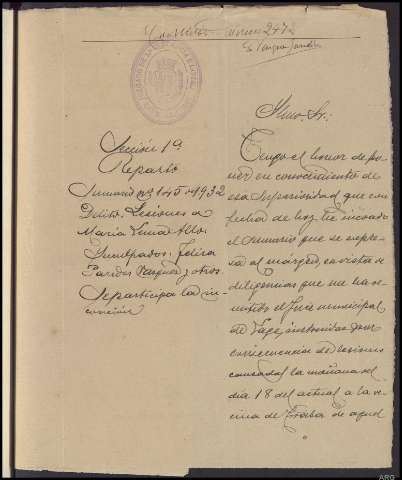 Ilmo. Sr.:
Sección 1ª
Reparto
Sumario nº 145-1932
Delito: Lesiones a
María Lema Allo.
Inculpados: Felisa
Paredes Vázquez y otros.
Se participa la in-
coación
Tengo el honor de po-
ner en conocimiento de
esa Superioridad que con
fecha de hoy he incoado
el sumario que se expre-
sa al margen, en vista de
diligencias que me ha re-
mitido el Juez municipal
de Lage, instruidas por
consecuencia de lesiones
causadas la mañana del
dia 18 del actual a la ve-
cina de Traba de aquel
ARG